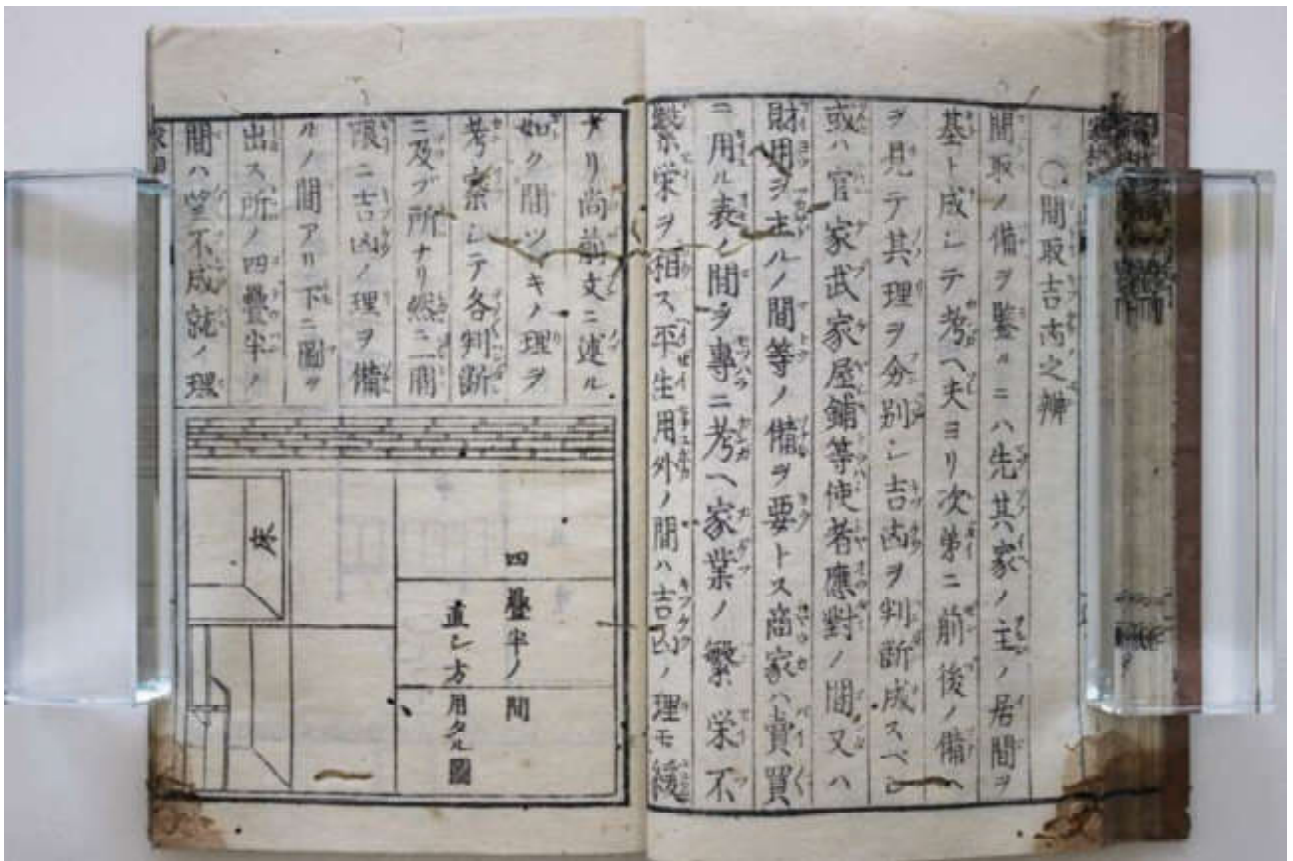 〇間取吉凶之辨
間取ノ備ヲ鑒ルニハ先其家ノ主ノ居間ヲ
基ト成シテ考ヘ夫ヨリ次第ニ前後ノ備ヘ
ヲ見テ其理ヲ分別シ吉凶ヲ判断成スベシ
或ハ官家武家屋鋪等使者應對ノ間又ハ
財用ヲ主ルノ間等ノ備ヲ要トス商家ハ賣買
ニ用ル表ノ間ヲ專ニ考ヘ家業ノ繁栄不
繁栄ヲ相ス平生用外ノ間ハ吉凶ノ理モ緩
ナリ尚前文ニ述ル
如ク間ツヾキノ理ヲ
考察シテ各判断
ニ及ブ所ナリ然ニ一間
限ニ吉凶ノ理ヲ備
ルノ間アリ下ニ圖ヲ
出ス所ノ四疊半ノ
間ハ望不成就ノ理
四疊半ノ間
直シ方用タル圖
床